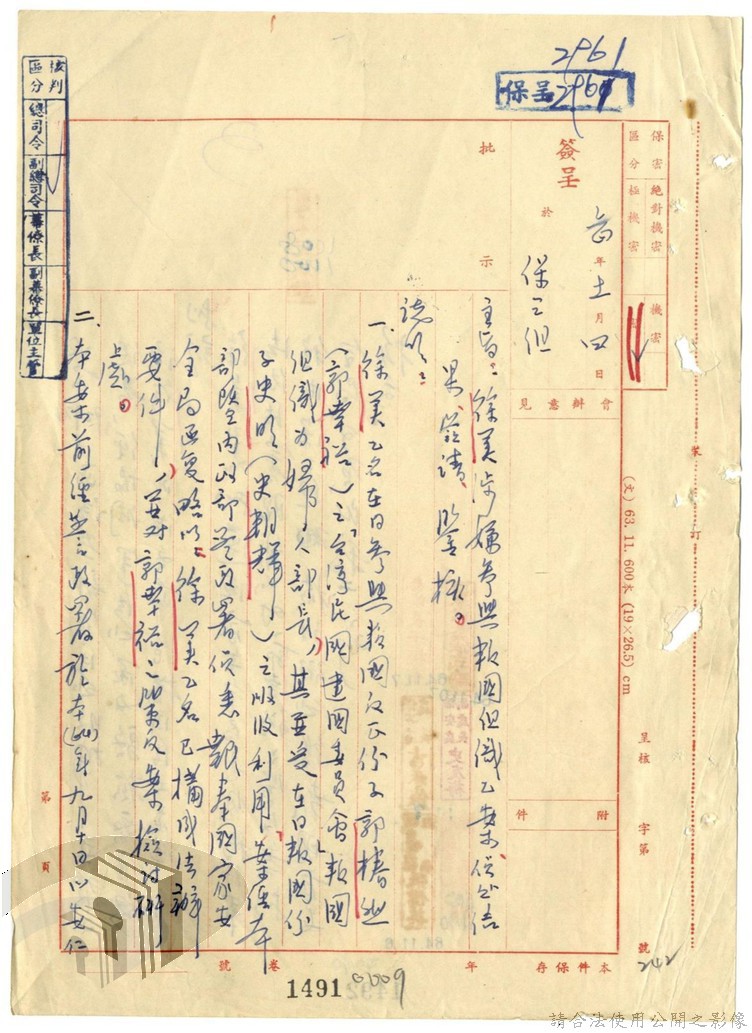 2961
保呈2961
保密區分
絕對機密
極機密
機密
簽呈
年土月四日
於
保二組
批示
會辦意見
附件
裝訂
(文) 63. 11. 600本 (19×26.5) cm
呈核 字第 號
242
本件保存 年
主旨:徐美涉嫌參與叛國組織乙案
果,簽請 鑒核。
說明:
一、徐美乙名在日參與叛國反正份子郭
(郭榮裕)之「台灣民國建國委員會」叛國
組織為婦人部長,其並受在日叛國份
子史明(史朝輝)之吸收利用案經本
部暨內政部警政署偵悉 奉國家安
全局函复略以:徐美乙名已構成法辦
要件,並對郭榮裕
上處。
二、本案前經警政署於本(64)年九月十日以安仁
決判區分
總司令
副總司令
幕僚長
副幕僚長
單位主管
第 頁
卷 號
1491
0009
請合法使用公開之影像